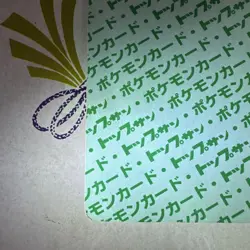 トップサン
ポケモンカード・
・トップサン・ポケモン
ポケモンカード・トップサン
・トップサン・ポケモンカード・
ポケモンカード・トップサン・
・トップサン・ポケモンカード
モンカード・トップサン
ポケモンカード